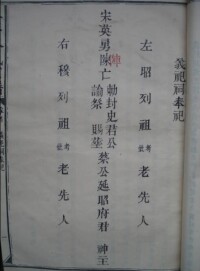 義祀祠奉祀
左昭列祖考妣老先人
宋英勇陣亡勅封史君公諭祭賜塋蔡公延昭府君神主
右穆列祖考妣老先人